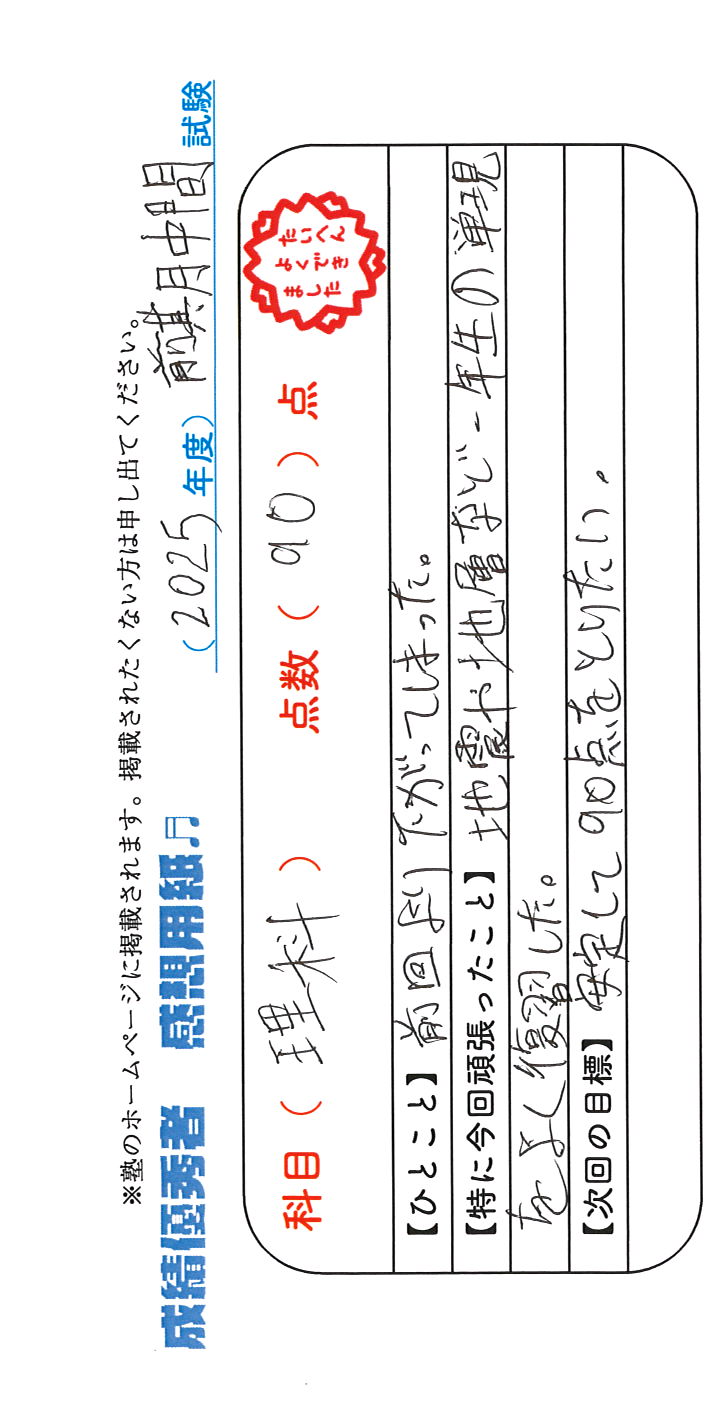 ※塾のホームページに掲載されます。掲載されたくない方は申し出てください。
成績優秀者 感想用紙♬ (2025年度) 前期中間 試験
科目 ( 理科 ) 点数 ( 90 ) 点
たいへん
よくでき
ました
【ひとこと】 前回より下がってしまった。
【特に今回頑張ったこと】 地震や地層など一年生の単現
をよく復習した。
【次回の目標】 安定して90点をとりたい。